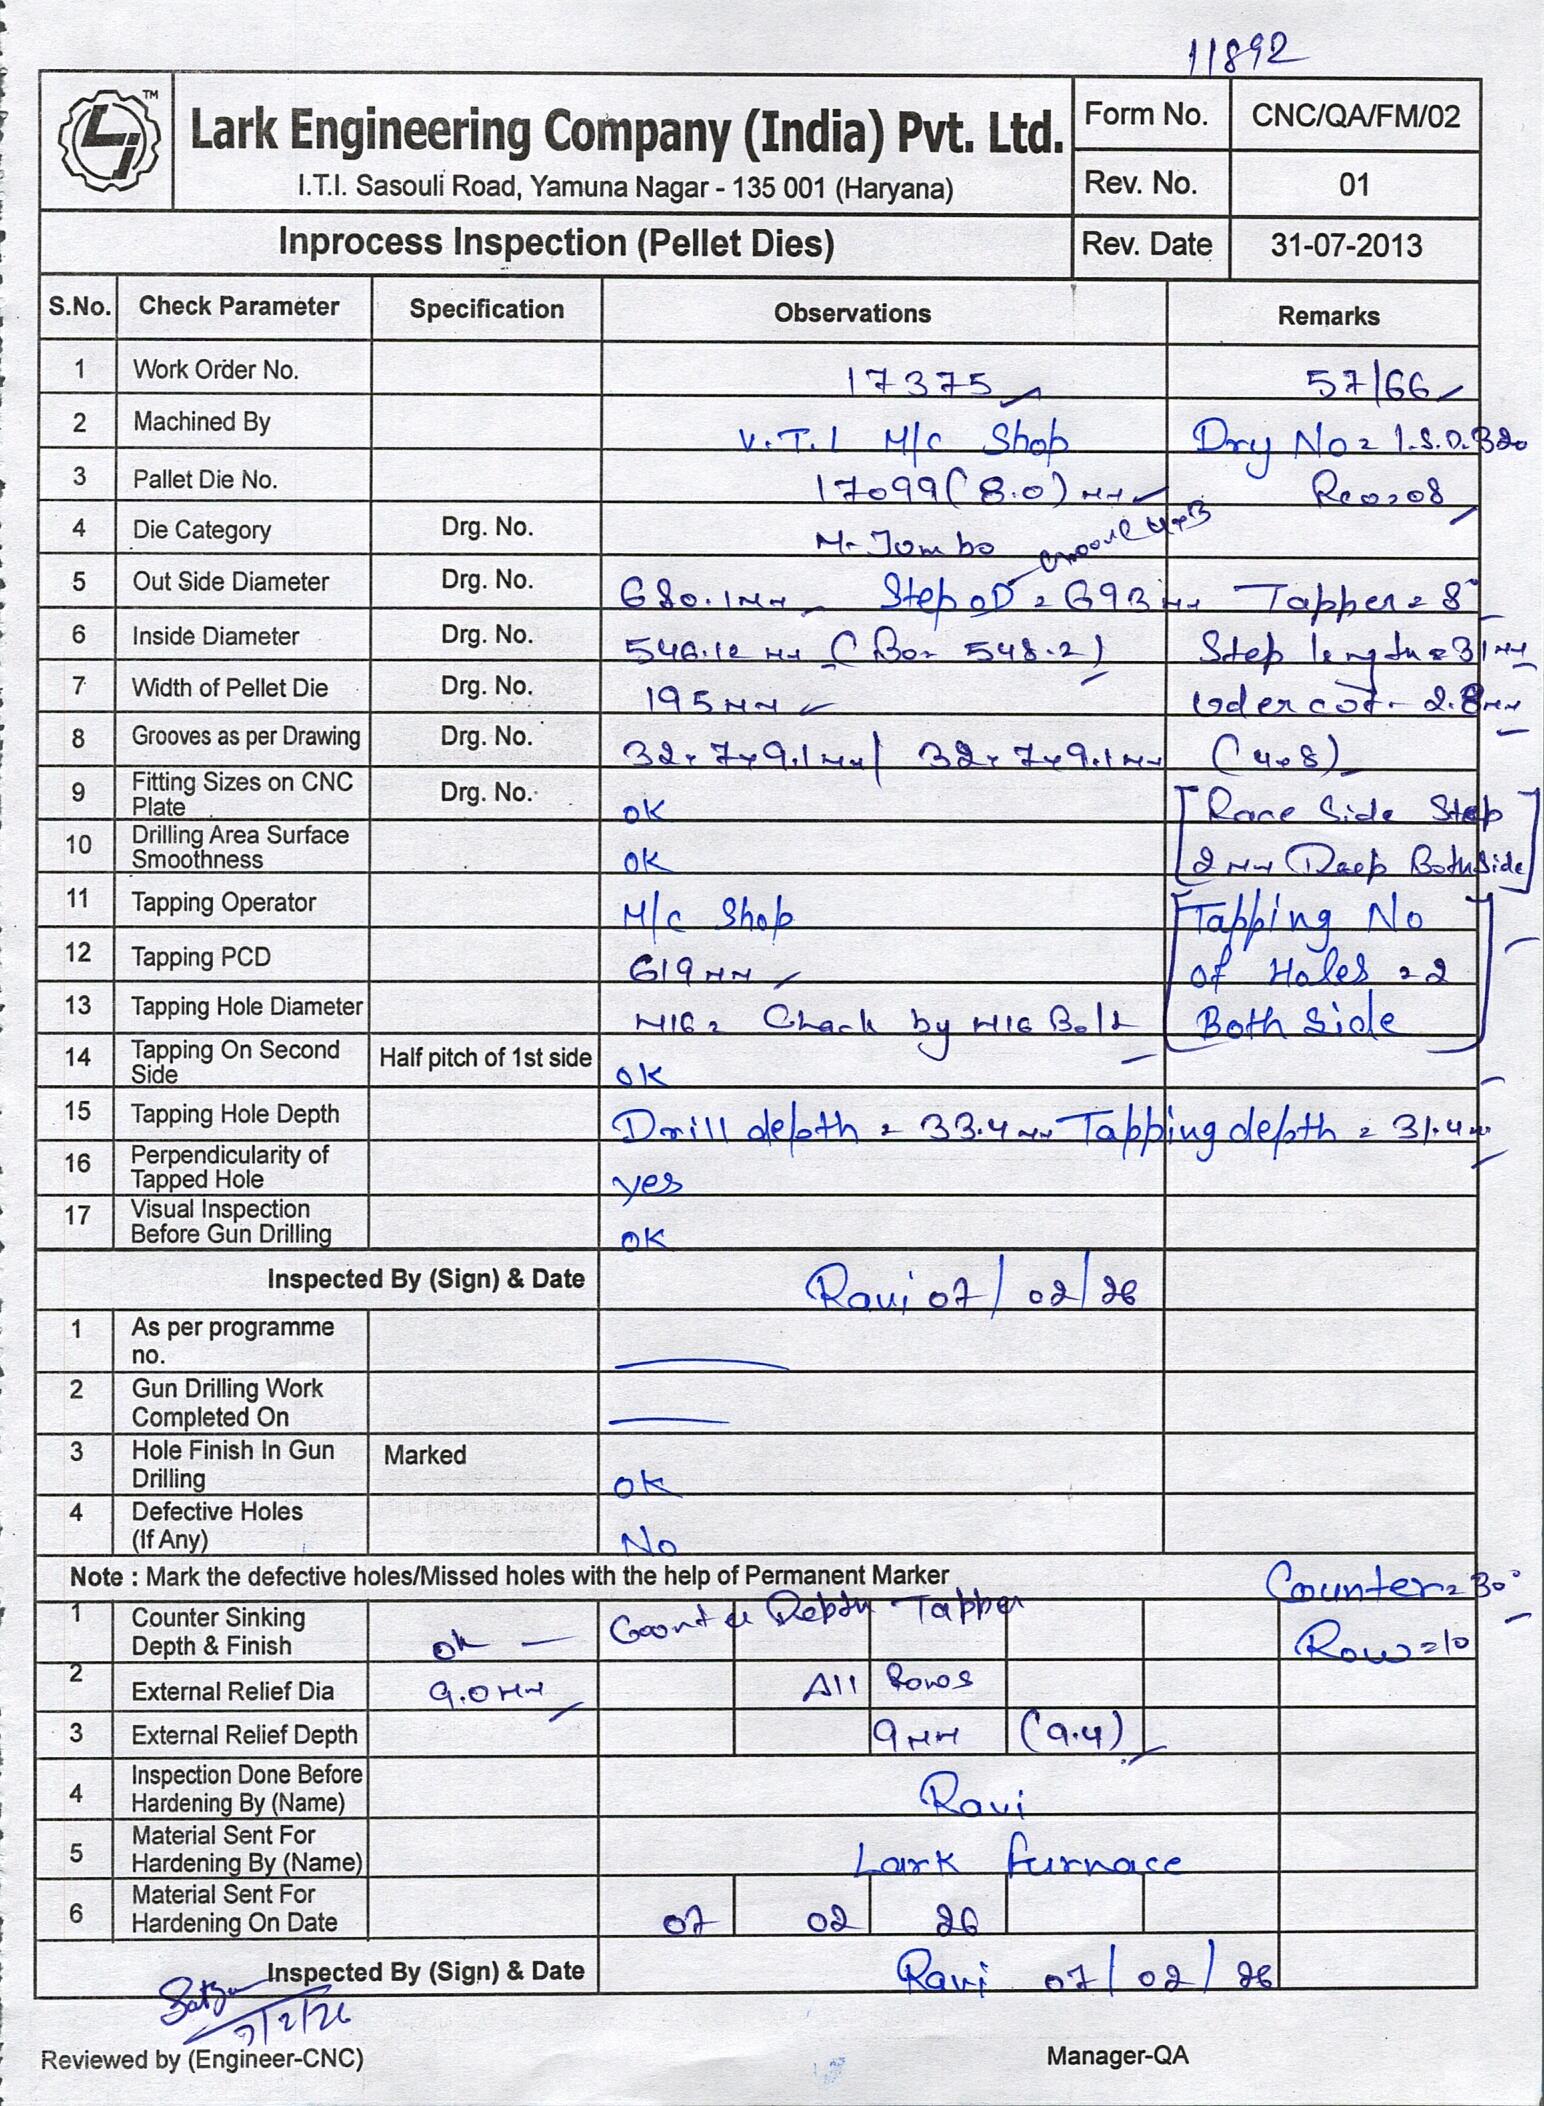 11892
Lark Engineering Company (India) Pvt. Ltd.
I.T.I. Sasouli Road, Yamuna Nagar - 135 001 (Haryana)
Form No. CNC/QA/FM/02
Rev. No. 01
Inprocess Inspection (Pellet Dies)
Rev. Date 31-07-2013
S.No. Check Parameter Specification Observations Remarks
1 Work Order No. 17375 57/66
2 Machined By V.T.L M/c Shop Dry No = I.S.O. 320
3 Pallet Die No. 17099 (8.0) MM
4 Die Category Drg. No. M-Jombo
5 Out Side Diameter Drg. No. 680.1MM Step OD = 693 MM Tapper = 8°
6 Inside Diameter Drg. No. Step length = 31MM
7 Width of Pellet Die Drg. No. 195MM Udercot - 2.8MM
8 Grooves as per Drawing Drg. No. 32x7x9.1MM / 32x7x9.1MM (4x8)
9 Fitting Sizes on CNC Plate Drg. No. OK [Race Side Step
10 Drilling Area Surface Smoothness OK 2MM Deep Both Side]
11 Tapping Operator M/c Shop [Tapping No
12 Tapping PCD 619MM of Holes = 2
13 Tapping Hole Diameter M16 = Chack by M16 Bolt Both Side]
14 Tapping On Second Side Half pitch of 1st side OK
15 Tapping Hole Depth Drill depth = 33.4MM Tapping depth = 31.4MM
16 Perpendicularity of Tapped Hole yes
17 Visual Inspection Before Gun Drilling OK
Inspected By (Sign) & Date Ravi 07/02/26
1 As per programme no.
2 Gun Drilling Work Completed On
3 Hole Finish In Gun Drilling Marked OK
4 Defective Holes (If Any) No
Note : Mark the defective holes/Missed holes with the help of Permanent Marker Counter = 30°
1 Counter Sinking Depth & Finish ok Depth Tapper Row = 10
2 External Relief Dia 9.0MM All Rows
3 External Relief Depth 9MM (9.4)
4 Inspection Done Before Hardening By (Name) Ravi
5 Material Sent For Hardening By (Name) Lark furnace
6 Material Sent For Hardening On Date 07 02 26
Inspected By (Sign) & Date Ravi 07/02/26
7/2/26
Reviewed by (Engineer-CNC) Manager-QA